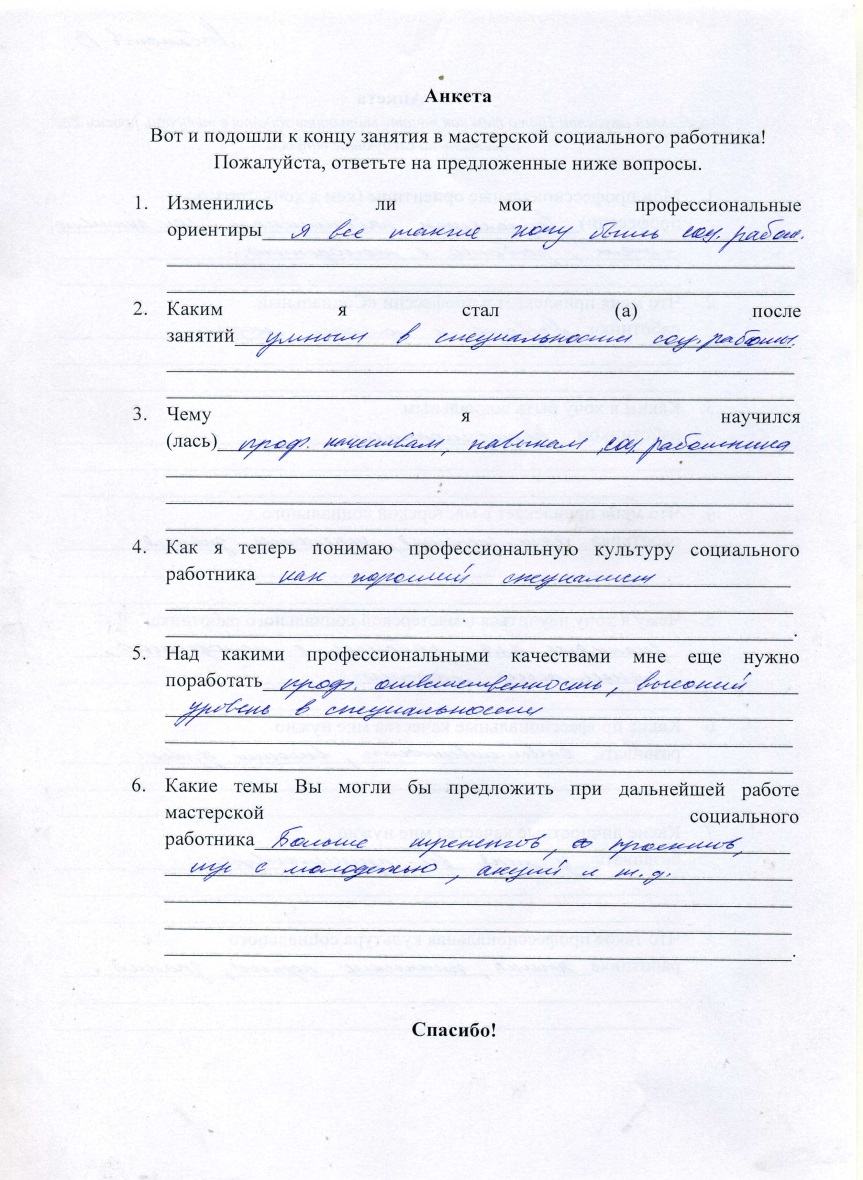 Анкета
Вот и подошли к концу занятия в мастерской социального работника!
Пожалуйста, ответьте на предложенные ниже вопросы.
1. Изменились ли мои профессиональные
ориентиры я все также хочу быть соц. работ.
2. Каким я стал (а) после
занятий умным в специальности соц. работы.
3. Чему я научился
(лась) проф. качествам, навыкам соц. работника
4. Как я теперь понимаю профессиональную культуру социального
работника как хороший специалист
5. Над какими профессиональными качествами мне еще нужно
поработать проф. ответственность, высокий
уровень в специальности
6. Какие темы Вы могли бы предложить при дальнейшей работе
мастерской социального
работника Больше тренингов, проектов,
игр с молодежью, акций и т.д.
Спасибо!